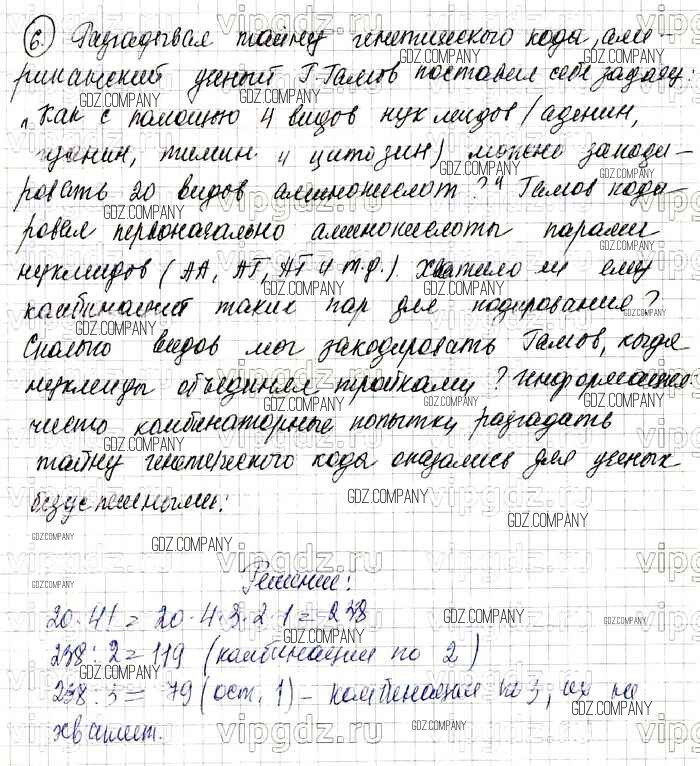 6. Разгадывая тайну генетического кода, аме-
риканский ученый Г. Гамов поставил себе задачу:
"Как с помощью 4 видов нуклеидов (аденин,
гуанин, тимин и цитозин) можно закоди-
ровать 20 видов аминокислот?" Гамов коди-
ровал первоначально аминокислоты парами
нуклеидов (АА, АТ, АГ и т.д.). Хватило ли ему
комбинаций таких пар для кодирования?
Сколько видов мог закодировать Гамов, когда
нуклеиды объединял тройками?
чисто комбинаторные попытки разгадать
тайну генетического кода оказались для ученых
безуспешными:
Решение:
20·4! = 20·4·3·2·1 = 238
238:2 = 119 (комбинации по 2)
238:3 = 79 (ост. 1) - комбинации по 3, их не
хватает.
GDZ.COMPANY
vipgdz.ru